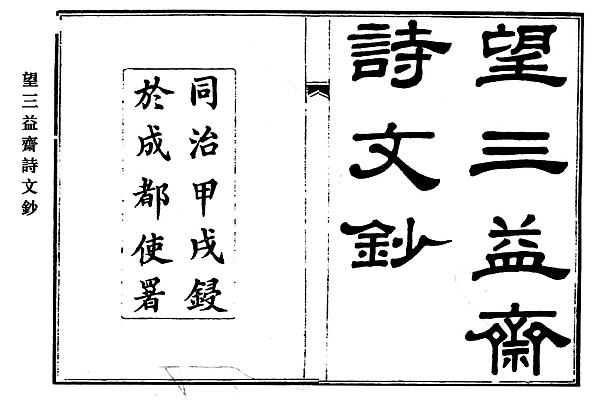 望三益齋
詩文鈔
同治甲戌鋟
於成都使署
望三益齋詩文鈔